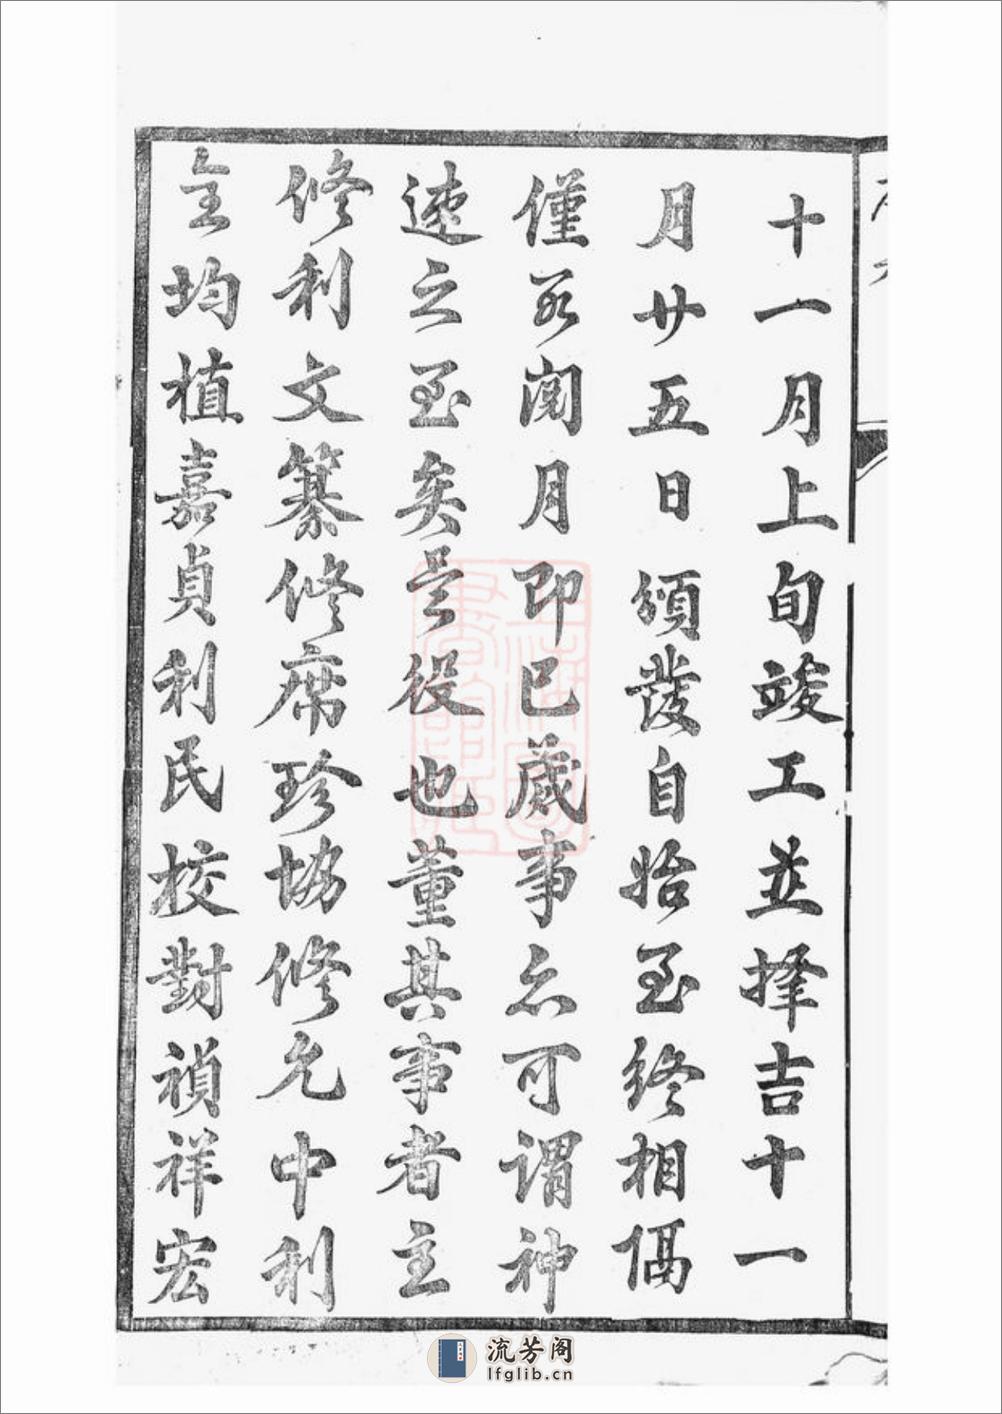 十一月上旬竣工並擇吉十一
月廿五日頒發自始至終相隔
僅四閱月即已蕆事亦可謂神
速之至矣是役也董其事者主
修利文纂修席珍協修允中利
全均植嘉貞利民校對禎祥宏
流芳阁
lfglib.cn